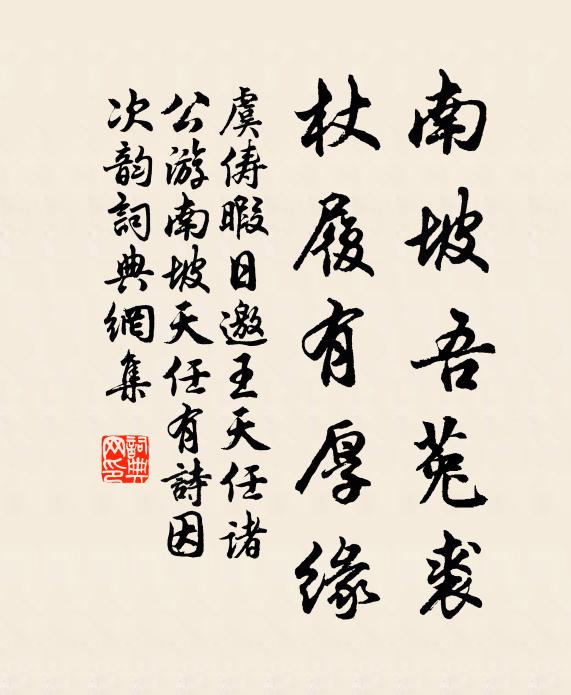 南坡吾菟裘
杖履有厚缘
虞俦暇日邀王天任诸
公游南坡天任有詩因
次韵詞典網集
詞典网印